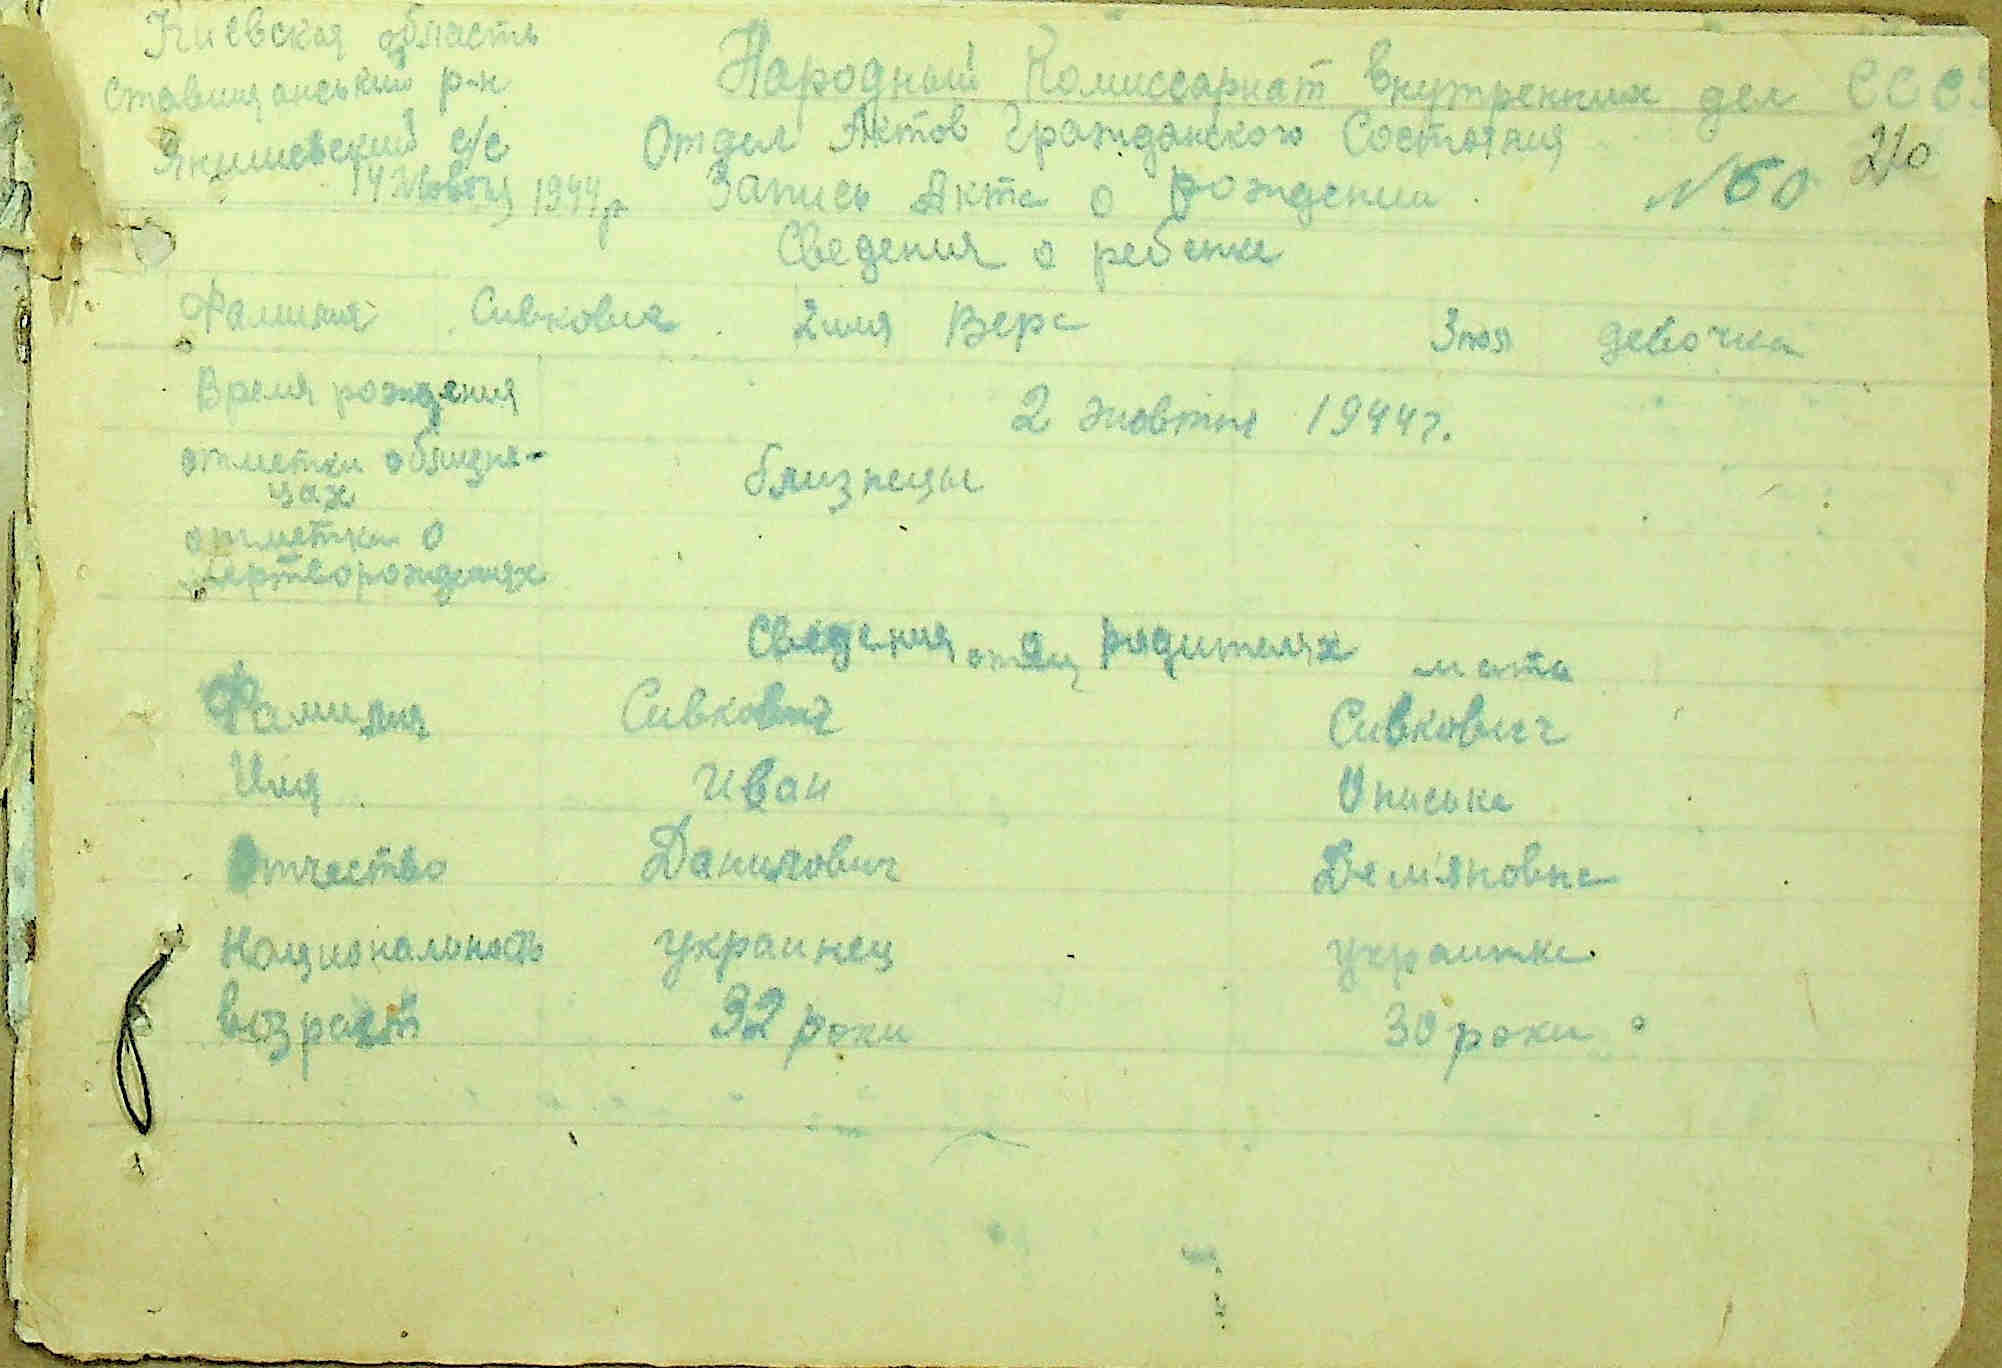 Киевская область
Ставищанський р-н
Янишевский с/с
14 Жовтня 1944 р
Народный Комиссариат внутренних дел СССР
Отдел Актов Гражданского Состояния
Запись Акта о рождении
№ 60
210
Сведения о ребенке
Фамилия Сивковиа 2 имя Вера 3 пол девочка
Время рождения 2 жовтня 1944 г.
отметки о близне-
цах близнецы
отметки о
мертворождениях
Сведения о родителях
отец мать
Фамилия Сивкович Сивкович
Имя Иван Ониська
Отчество Данилович Дем'яновна
Национальность украинец украинка
возраст 32 роки 30 роки